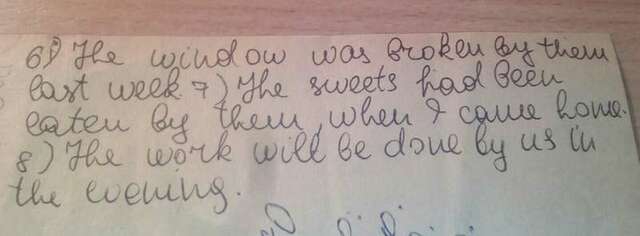 6) The window was broken by them
last week 7) The sweets had been
eaten by them, when I came home.
8) The work will be done by us in
the evening.